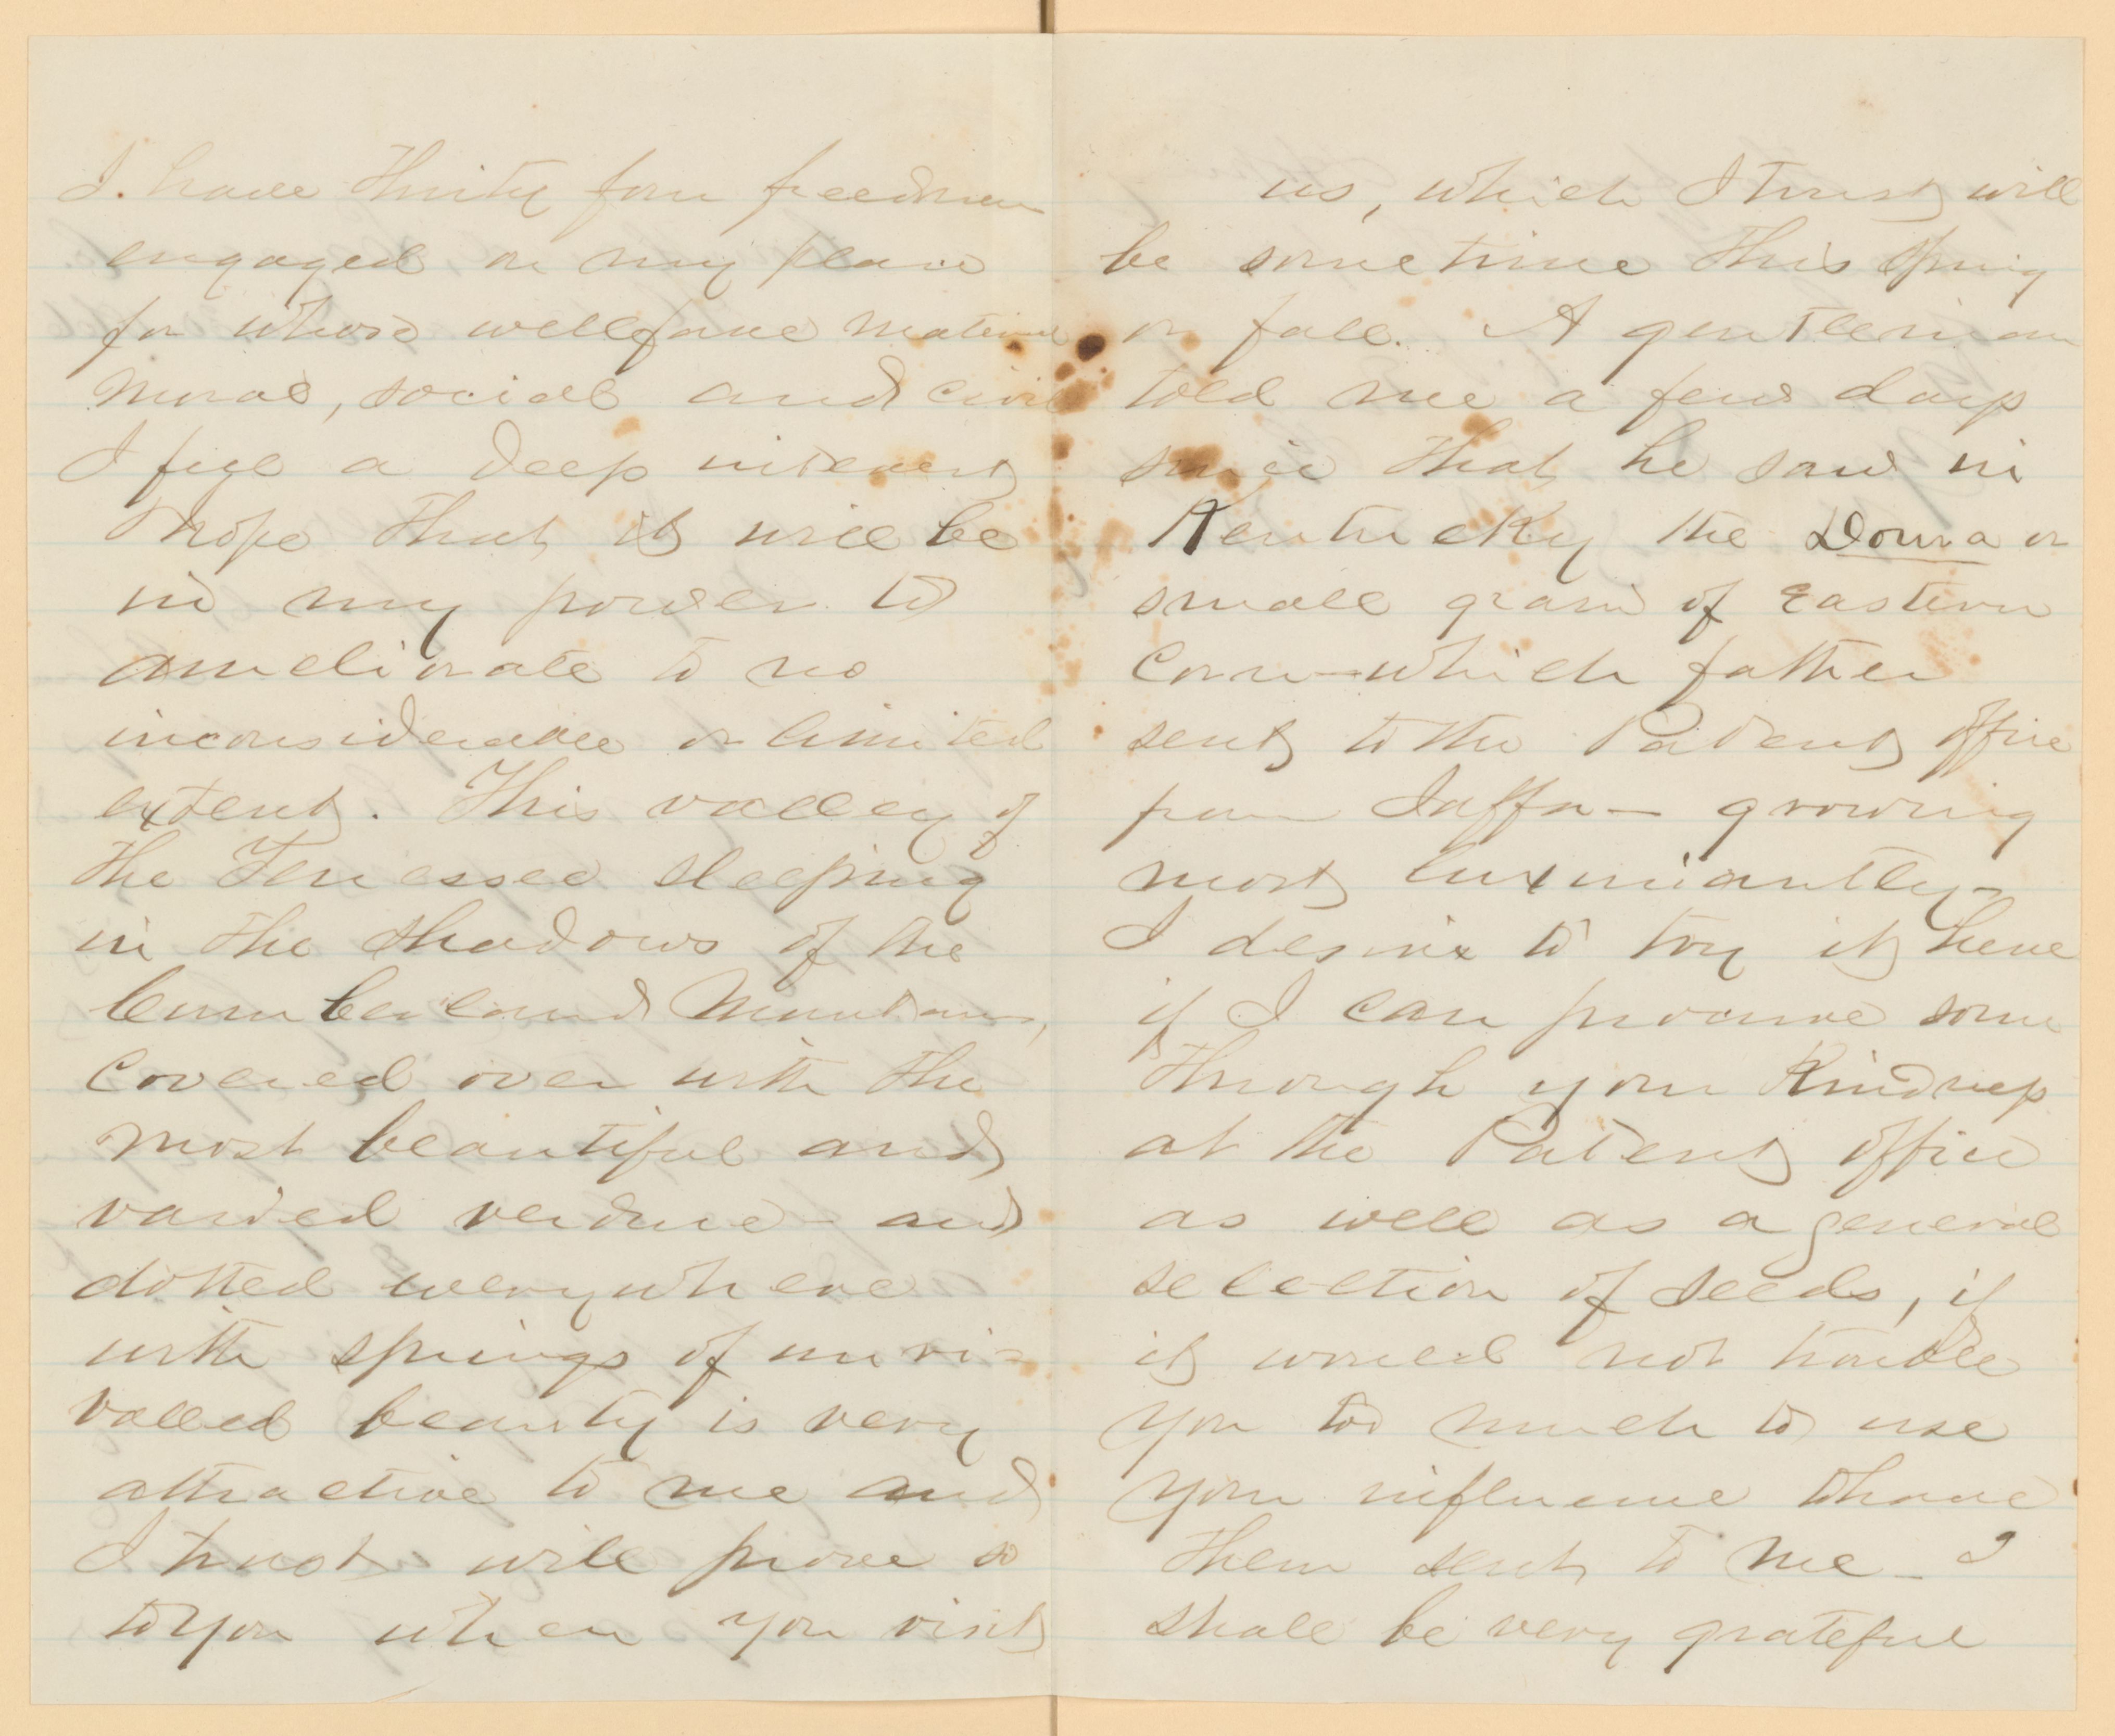 I have thirty four freedmen
engaged on my place
for whose wellfare material
moral, social and civil
I feel a deep interest
& hope that it will be
in my power to
ameliorate to no
inconsiderable or limited
extent. This valley of
the Tenessee sleeping
in the shadows of the
Cumberland Mountains,
covered over with the
most beautiful and
varied verdure - and
dotted everywhere
with springs of unri-
valled beauty is very
attractive to me and
I trust will prove so
to you when you visit
us, which I trust will
be sometime this spring
or fall. A gentleman
told me a few days
since that he saw in
Kentucky the Doura or
small grain of Eastern
Corn - which father
sent to the Patent Office
from Jaffa - growing
most luxuriantly -
I desire to try it here
if I can procure some
through your kindness
at the Patent office
as well as a general
selection of seeds, if
it would not trouble
you too much to use
your influence to have
them sent to me - I
shall be very grateful